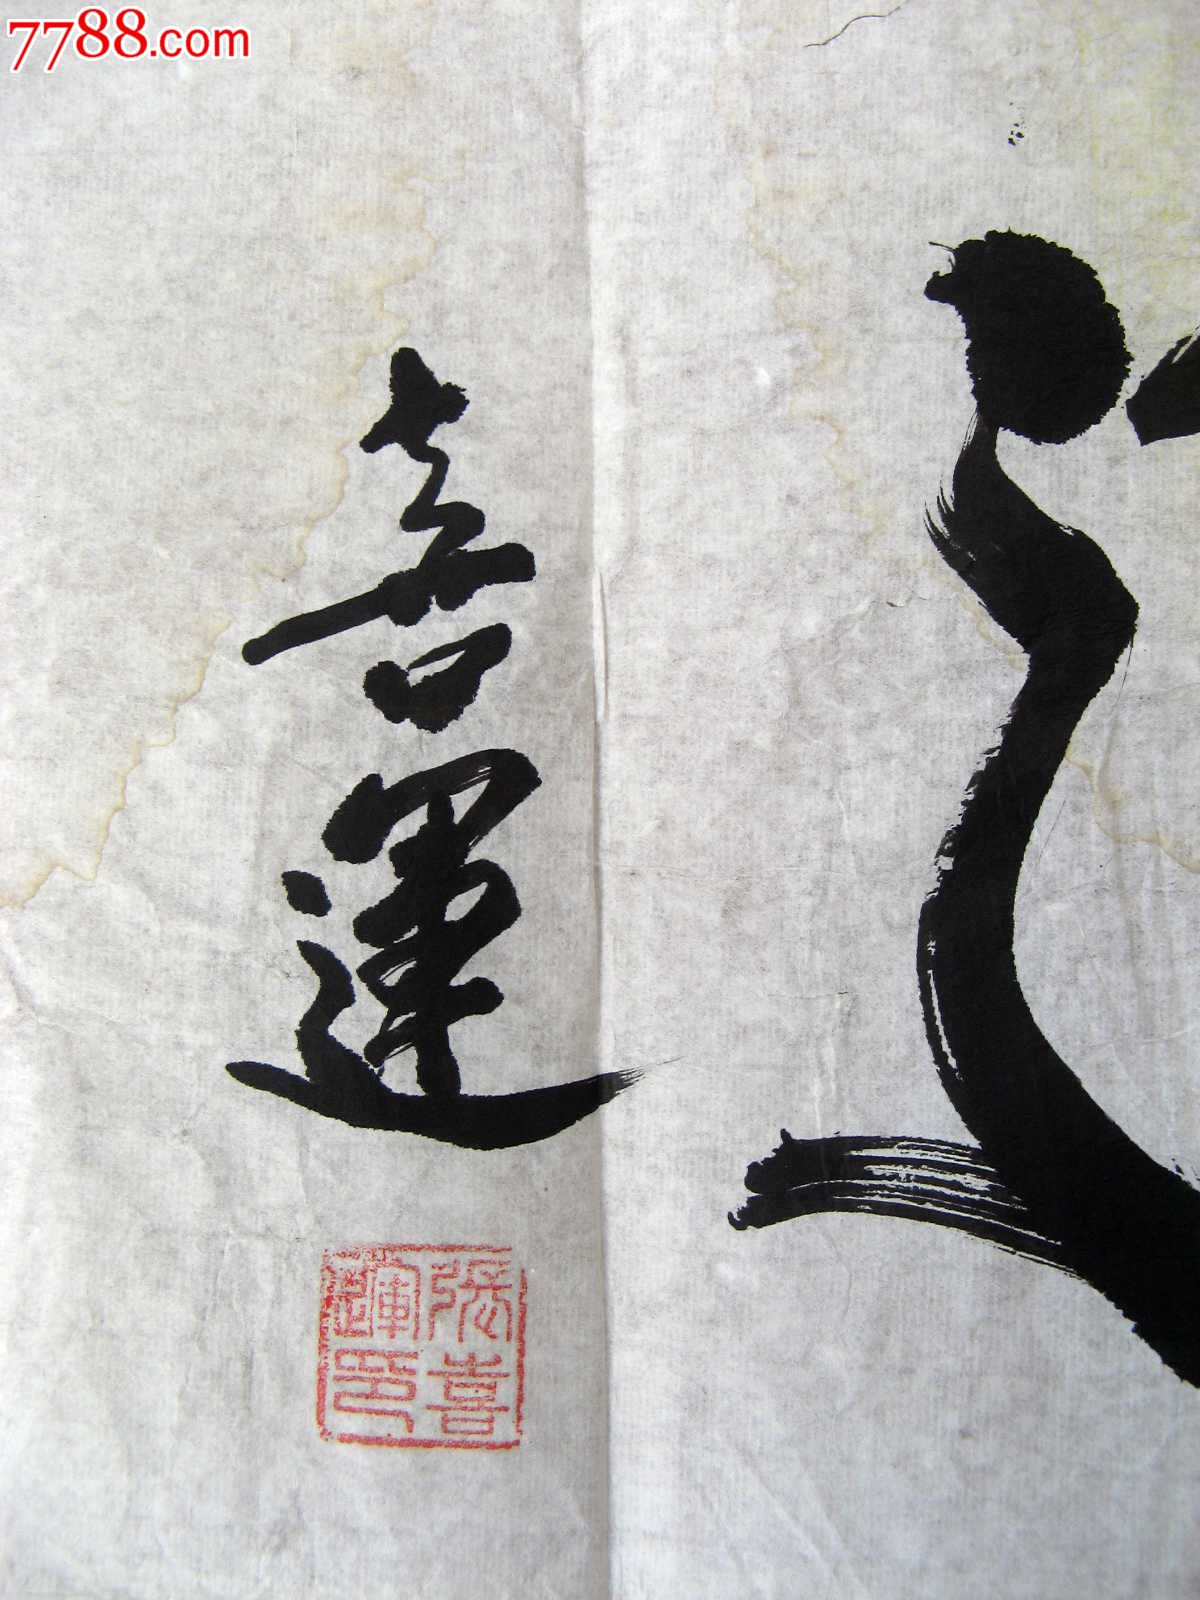 7788.com
喜運
張喜運印